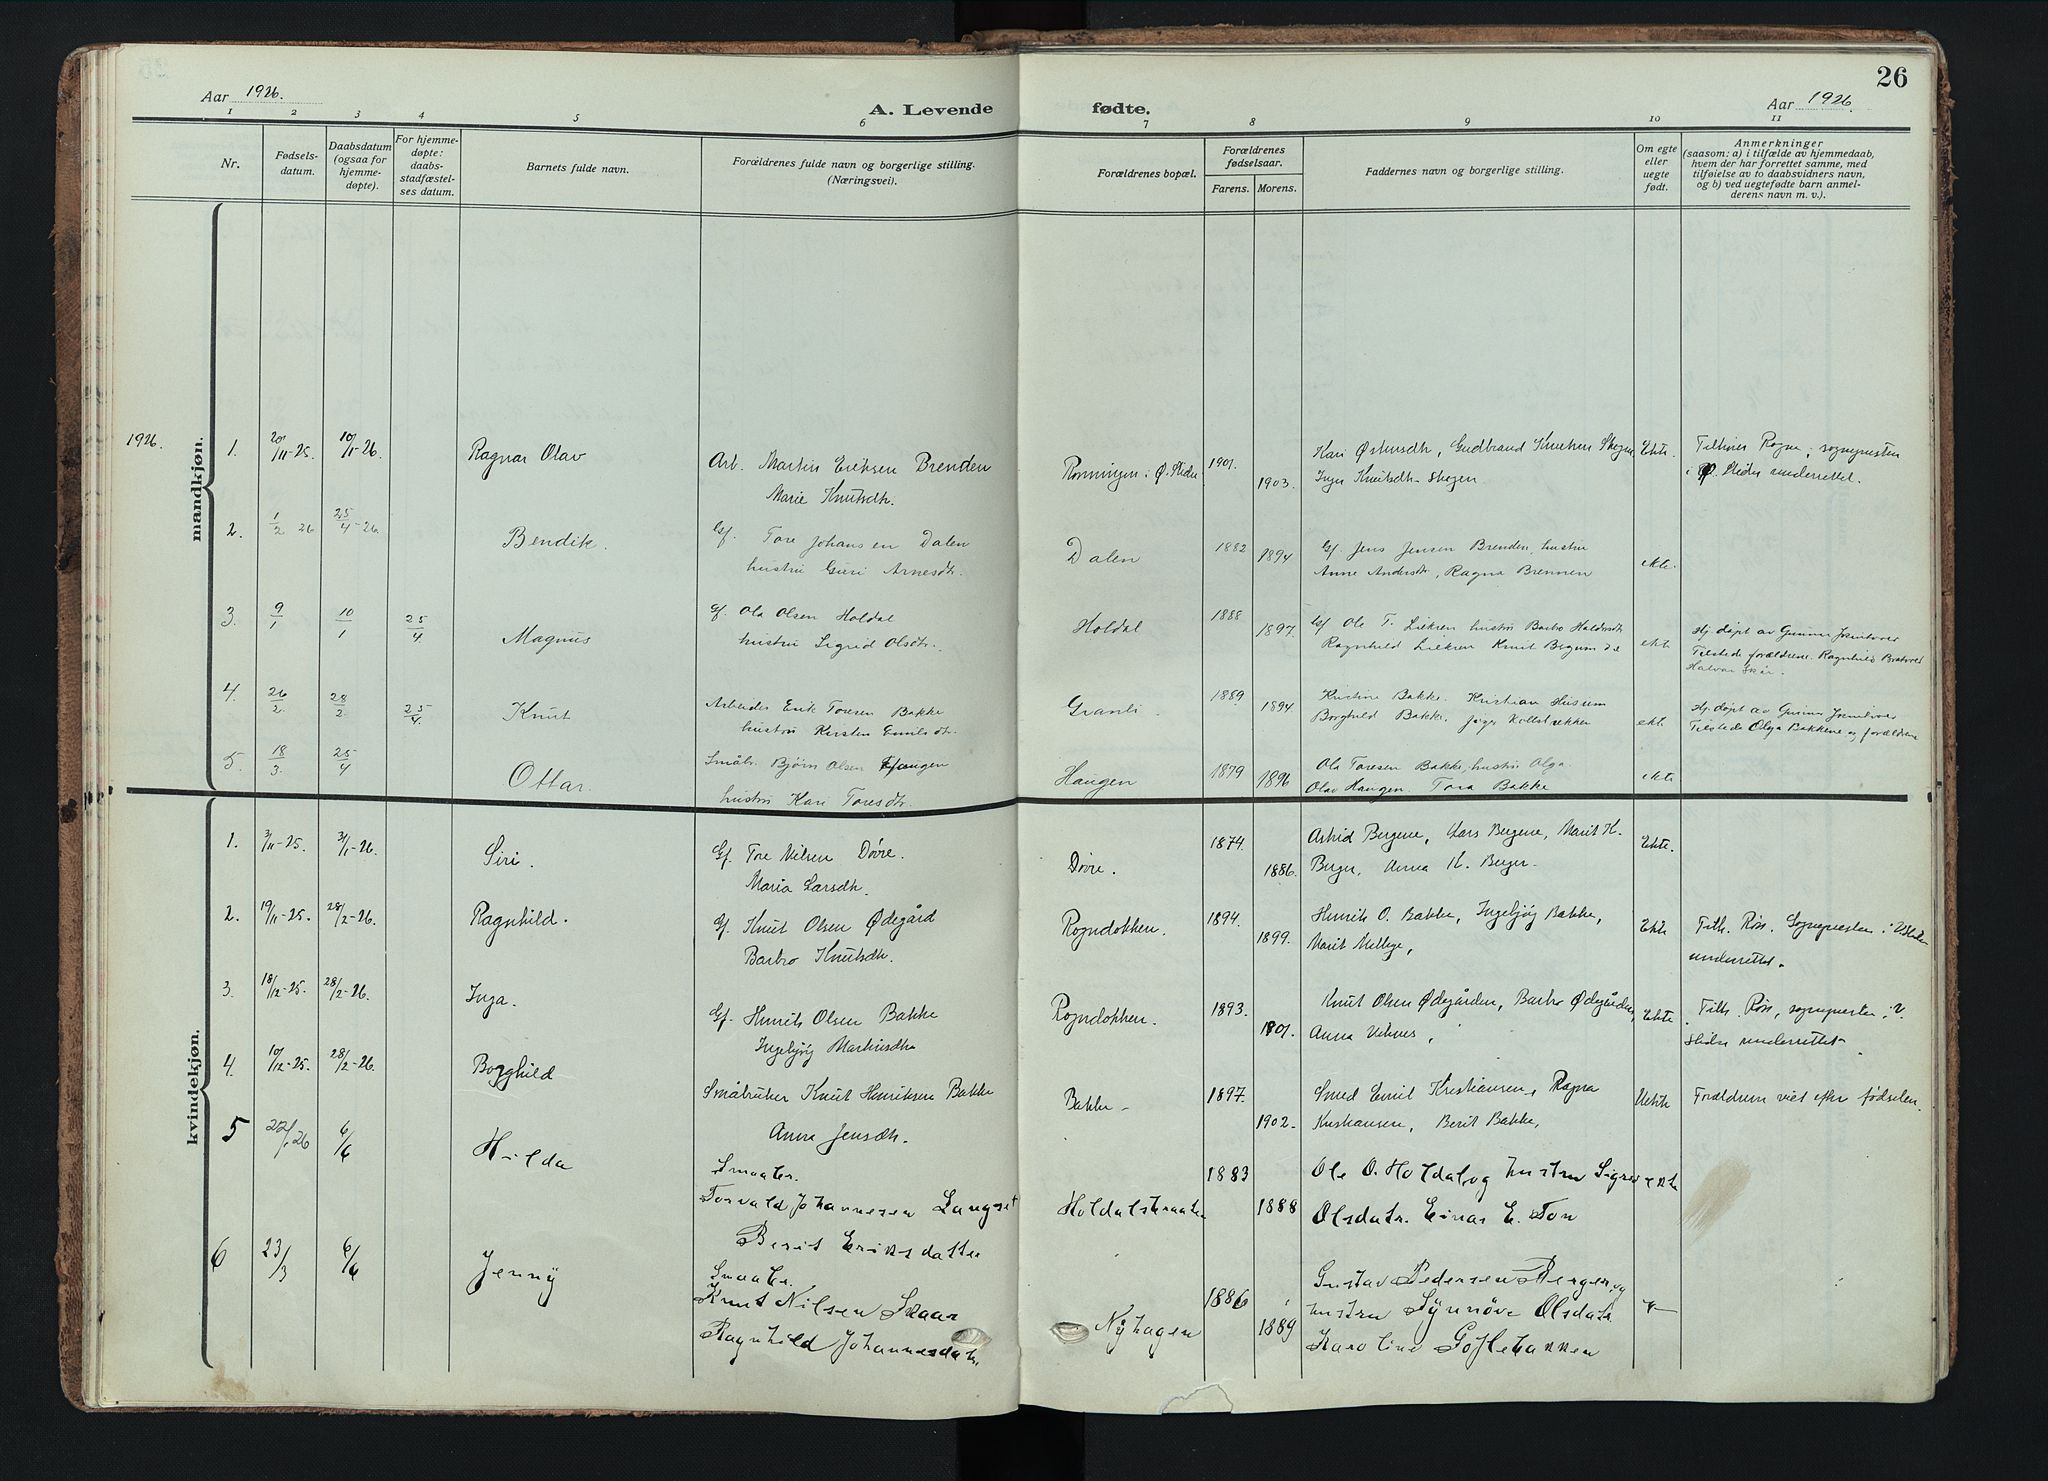 26
Aar 1926.
A. Levende fødte.
Aar 1926.
1 2 3 4 5 6 7 8 9 10 11
Nr.
Fødsels-
datum.
Daabsdatum
(ogsaa for
hjemme-
døpte).
For hjemme-
døpte:
daabs-
stadfæstel-
ses datum.
Barnets fulde navn.
Forældrenes fulde navn og borgerlige stilling.
(Næringsvei).
Forældrenes bopæl.
Forældrenes
fødselsaar.
Farens. Morens.
Faddernes navn og borgerlige stilling.
Om egte
eller
uegte
født.
Anmerkninger
(saasom: a) i tilfælde av hjemmedaab,
hvem der har forrettet samme, med
tilføielse av to daabsvidners navn,
og b) ved uegtefødte barn anmel-
derens navn m. v.).
mandkjøn.
1926.
1. 20/11-25. 10/1-26. Ragnar Olav Arb. Martin Eriksen Brenden Rønningen i Ø. Slidre 1901. Kari Østensdtr, Gudbrand Knutsen Skogen Ekte. Tilhører Rogne, sognepresten
Marie Knutsdtr. 1903. Inger Knutsdtr Skogen i Ø. Slidre underrettet.
2. 1/2 26 25/4-26. Bendik. Gf. Tore Johansen Dalen Dalen 1882 Gf. Jens Jensen Brenden, hustru
hustru Guri Arnesdtr. 1894 Anne Andersdtr, Ragna Brennen ekte.
3. 9/1 10/1 25/4 Magnus Gf. Ola Olsen Holdal Holdal 1888 Gf Ole T. Lieksen hustru Barbro Haldorsdtr Hj. døpt av Gunnar
hustru Sigrid Olsdtr. 1897. Ragnhild Lieksen Knut Begum ekte Tilstede forældrene. Ragnhild
Halvar Skår.
4. 26/2 28/2 25/4 Knut Arbeider Erik Toresen Bakke Granli. 1889 Kristine Bakke. Kristian Husum Hj. døpt av Gunnar
hustru Kirsten Emilsdtr. 1894 Borghild Bakke. ekte Tilstede Olga Bakkene og forældrene
5. 18/3. 25/4 Ottar. Småbr. Bjørn Olsen Haugen Haugen 1879 Ola Toresen Bakke, hustru Olga
hustru Kari Toresdtr. 1896 Olav Haugen. Tora Bakke ekte
kvindekjøn.
1. 3/11-25. 3/1-26. Siri. Gf. Tore Nilsen Døvre. Døvre. 1874. Astrid Bergene, Lars Bergene, Marit K. Ekte.
Maria Larsdtr. 1886. Berger, Anna K. Berger.
2. 19/11-25. 28/2-26. Ragnhild. Gf. Knut Olsen Ødegård Rogndokken. 1894. Henrik O. Bakke, Ingebjørg Bakke, Ekte Tilh. Røn. Sognepresten i V. Slidre
Barbro Knutsdtr. 1899. Marit Mellige, underrettet.
3. 18/12-25. 28/2-26. Inga. Gf. Henrik Olsen Bakke Rogndokken. 1893. Knut Olsen Ødegården, Barbro Ødegården, Ekte Tilh. Røn, sognepresten i V.
Ingebjørg Markusdtr 1901. Anna Veknes, Slidre underrettet.
4. 10/12-25. 28/2-26. Borghild Småbruker Knut Henriksen Bakke Bakke 1897. Smed Emil Kristiansen, Ragna Uekte Forældrene viet efter fødselen.
Anna Jensdtr. 1902. Kristiansen, Berit Bakke,
5 22/1 26 6/6 Hilda Smaabr. 1883 Ole O. Holdal og hustru Sigrid ekte
Torvald Johannesen Langset Holdalsbraaten 1888 Olsdatr. Einar E. Ton
Berit Eriksdatter
6 23/3 6/6 Jenny Smaabr. Gustav Pedersen Berger og
Knut Nilsen Skaar Nyhagen 1886 hustru Synnøve Olsdatr.
Ragnhild Johannesdatr. 1889 Karoline